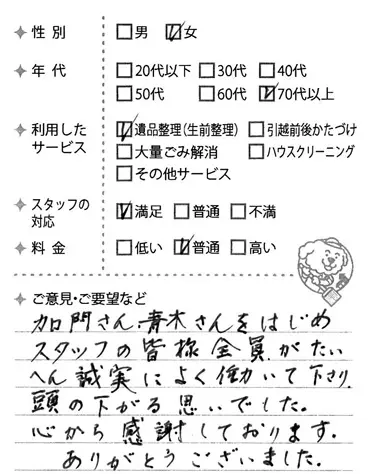 性別 □男 ☑女
年代 □20代以下 □30代 □40代
□50代 □60代 ☑70代以上
利用した
サービス
☑遺品整理(生前整理) □引越前後かたづけ
□大量ごみ解消 □ハウスクリーニング
□その他サービス
スタッフの
対応
☑満足 □普通 □不満
料金 □低い ☑普通 □高い
ご意見・ご要望など
加門さん、青木さんをはじめ
スタッフの皆様全員がたい
へん誠実によく働いて下さり
頭の下がる思いでした。
心から感謝しております。
ありがとうございました。